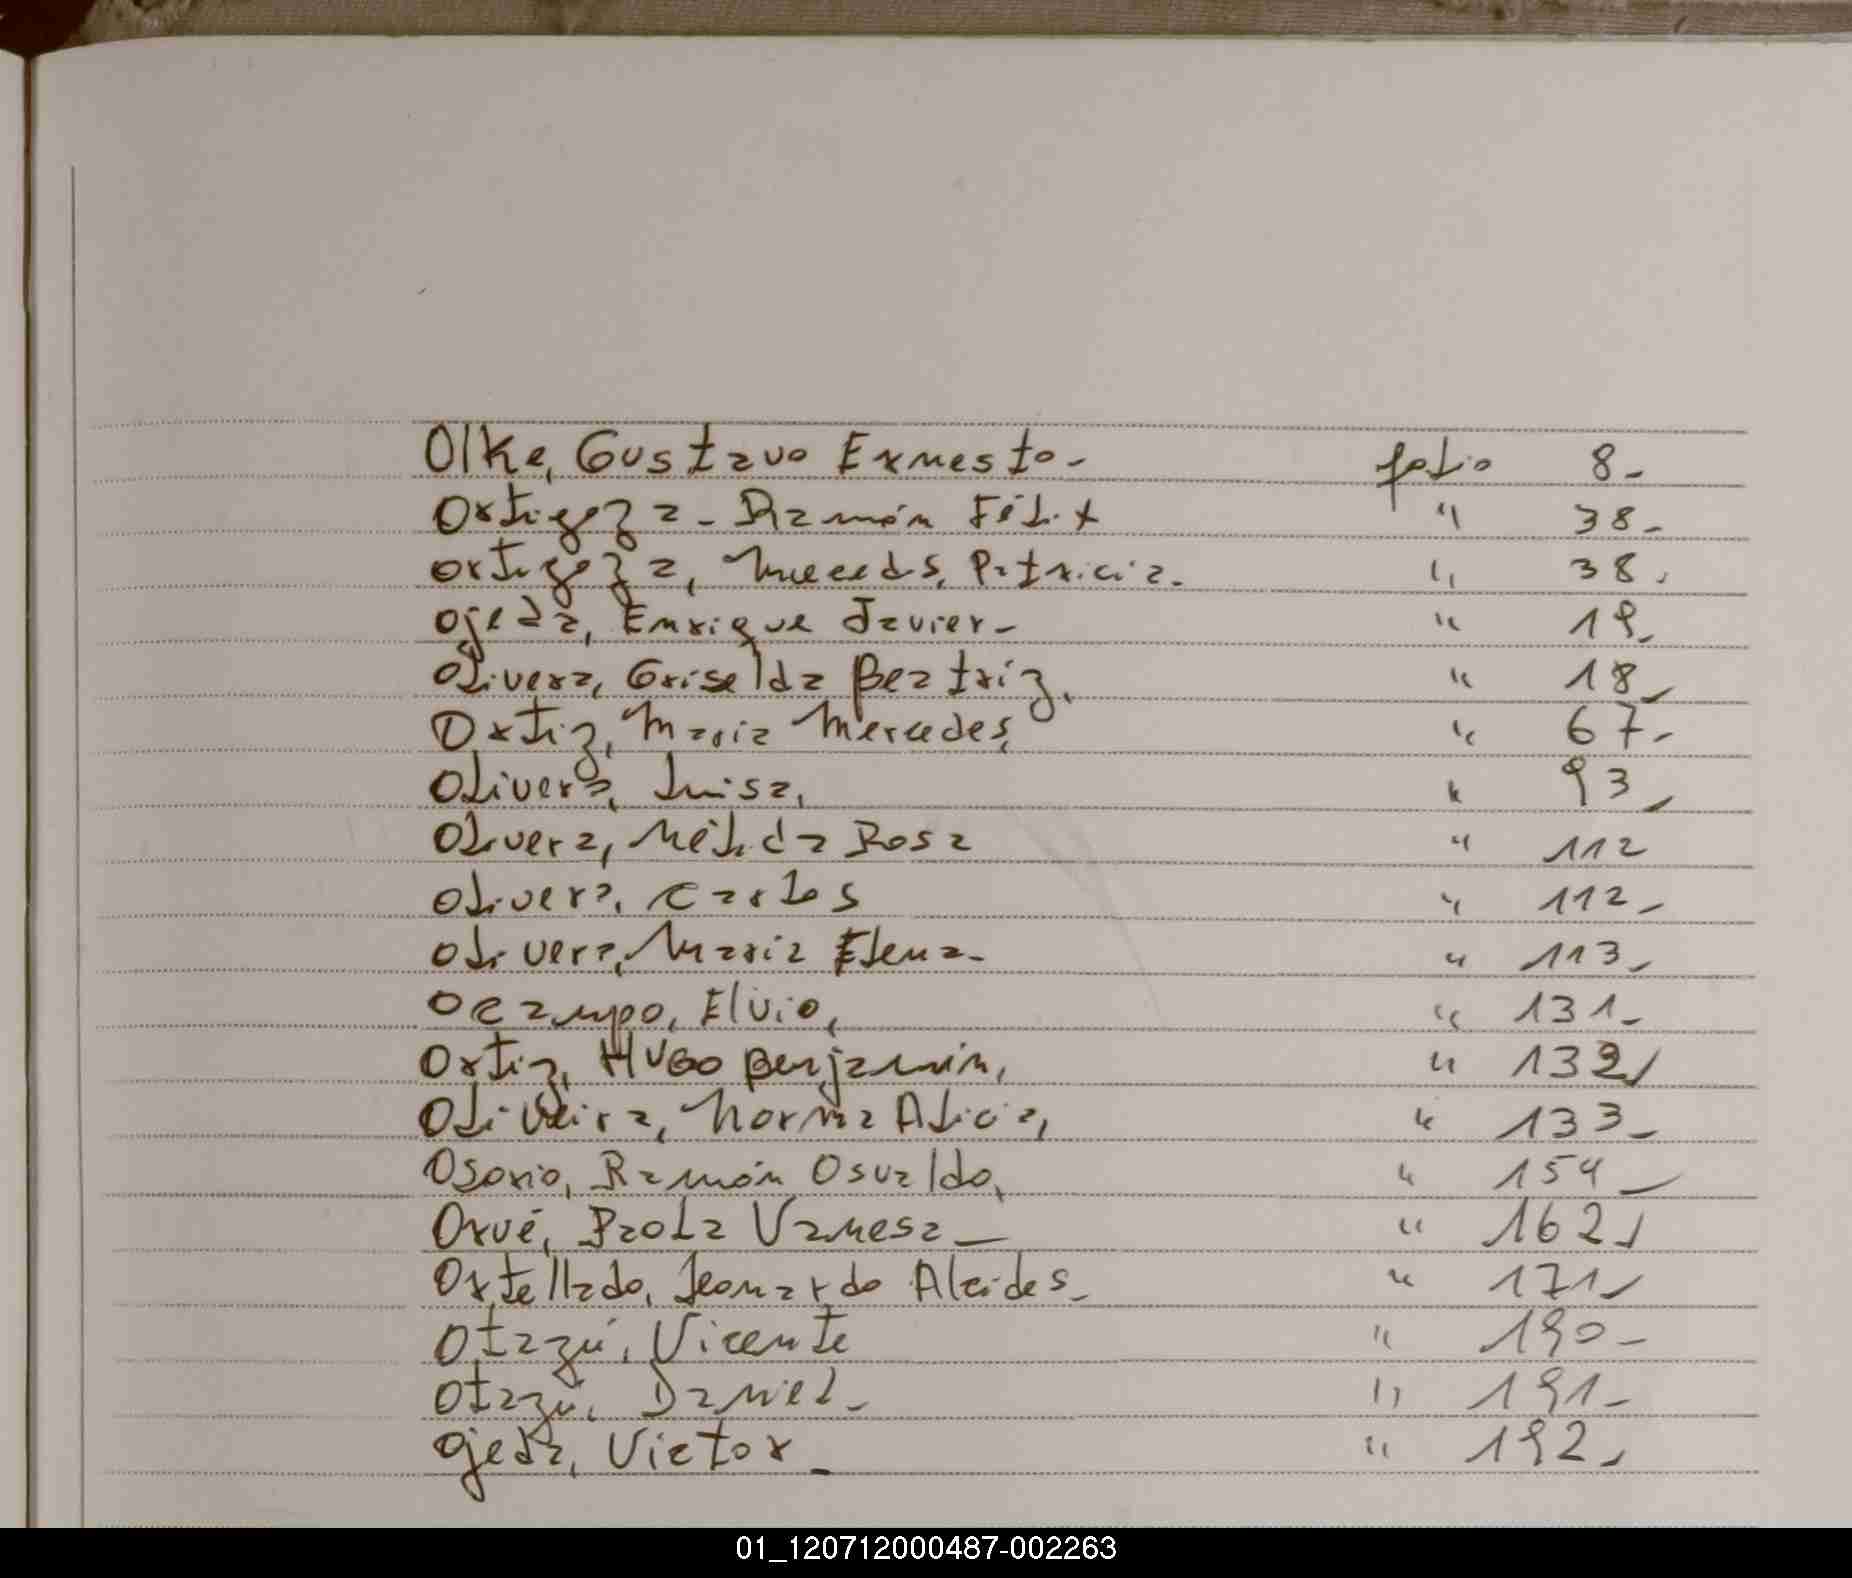 Olke, Gustavo Ernesto- folio 8-
Ortigoza- Ramón Félix " 38-
Ortigoza, Mercedes, Patricia. " 38.
Ojeda, Enrique Javier- " 19-
Olivera, Griselda Beatriz, " 18-
Ortiz, Maria Mercedes, " 67-
Olivera, Luisa, " 93-
Olivera, Nélida Rosa " 112
Olivera, Carlos " 112-
Olivera, Maria Elena- " 113-
Ocampo, Elvio, " 131-
Ortiz, Hugo Benjamín, " 132/
Oliveira, Norma Alicia, " 133-
Osorio, Ramón Osvaldo, " 154-
Orué, Paola Vanesa- " 162/
Ortellado, Leonardo Alcides- " 171-
Otazú, Vicente " 190-
Otazú, Daniel- " 191-
Ojeda, Victor- " 192-
01_120712000487-002263